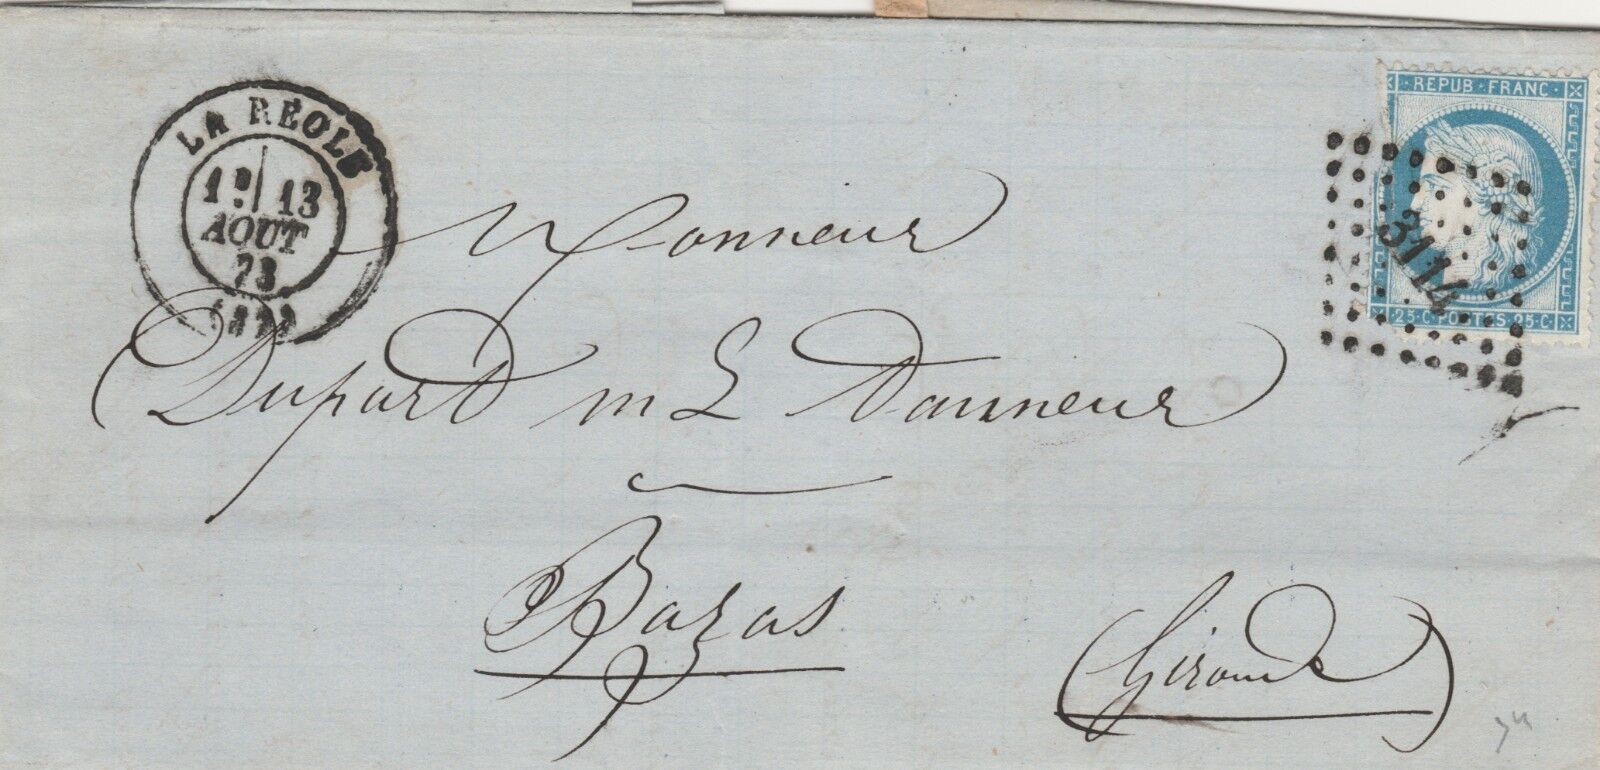 LA RÉOLE
1E 13
AOUT
73
(32)
REPUB · FRANC ·
3114
25·C·POSTES·25·C·
Monsieur
Dupart md Tanneur
Bazas
(Gironde)